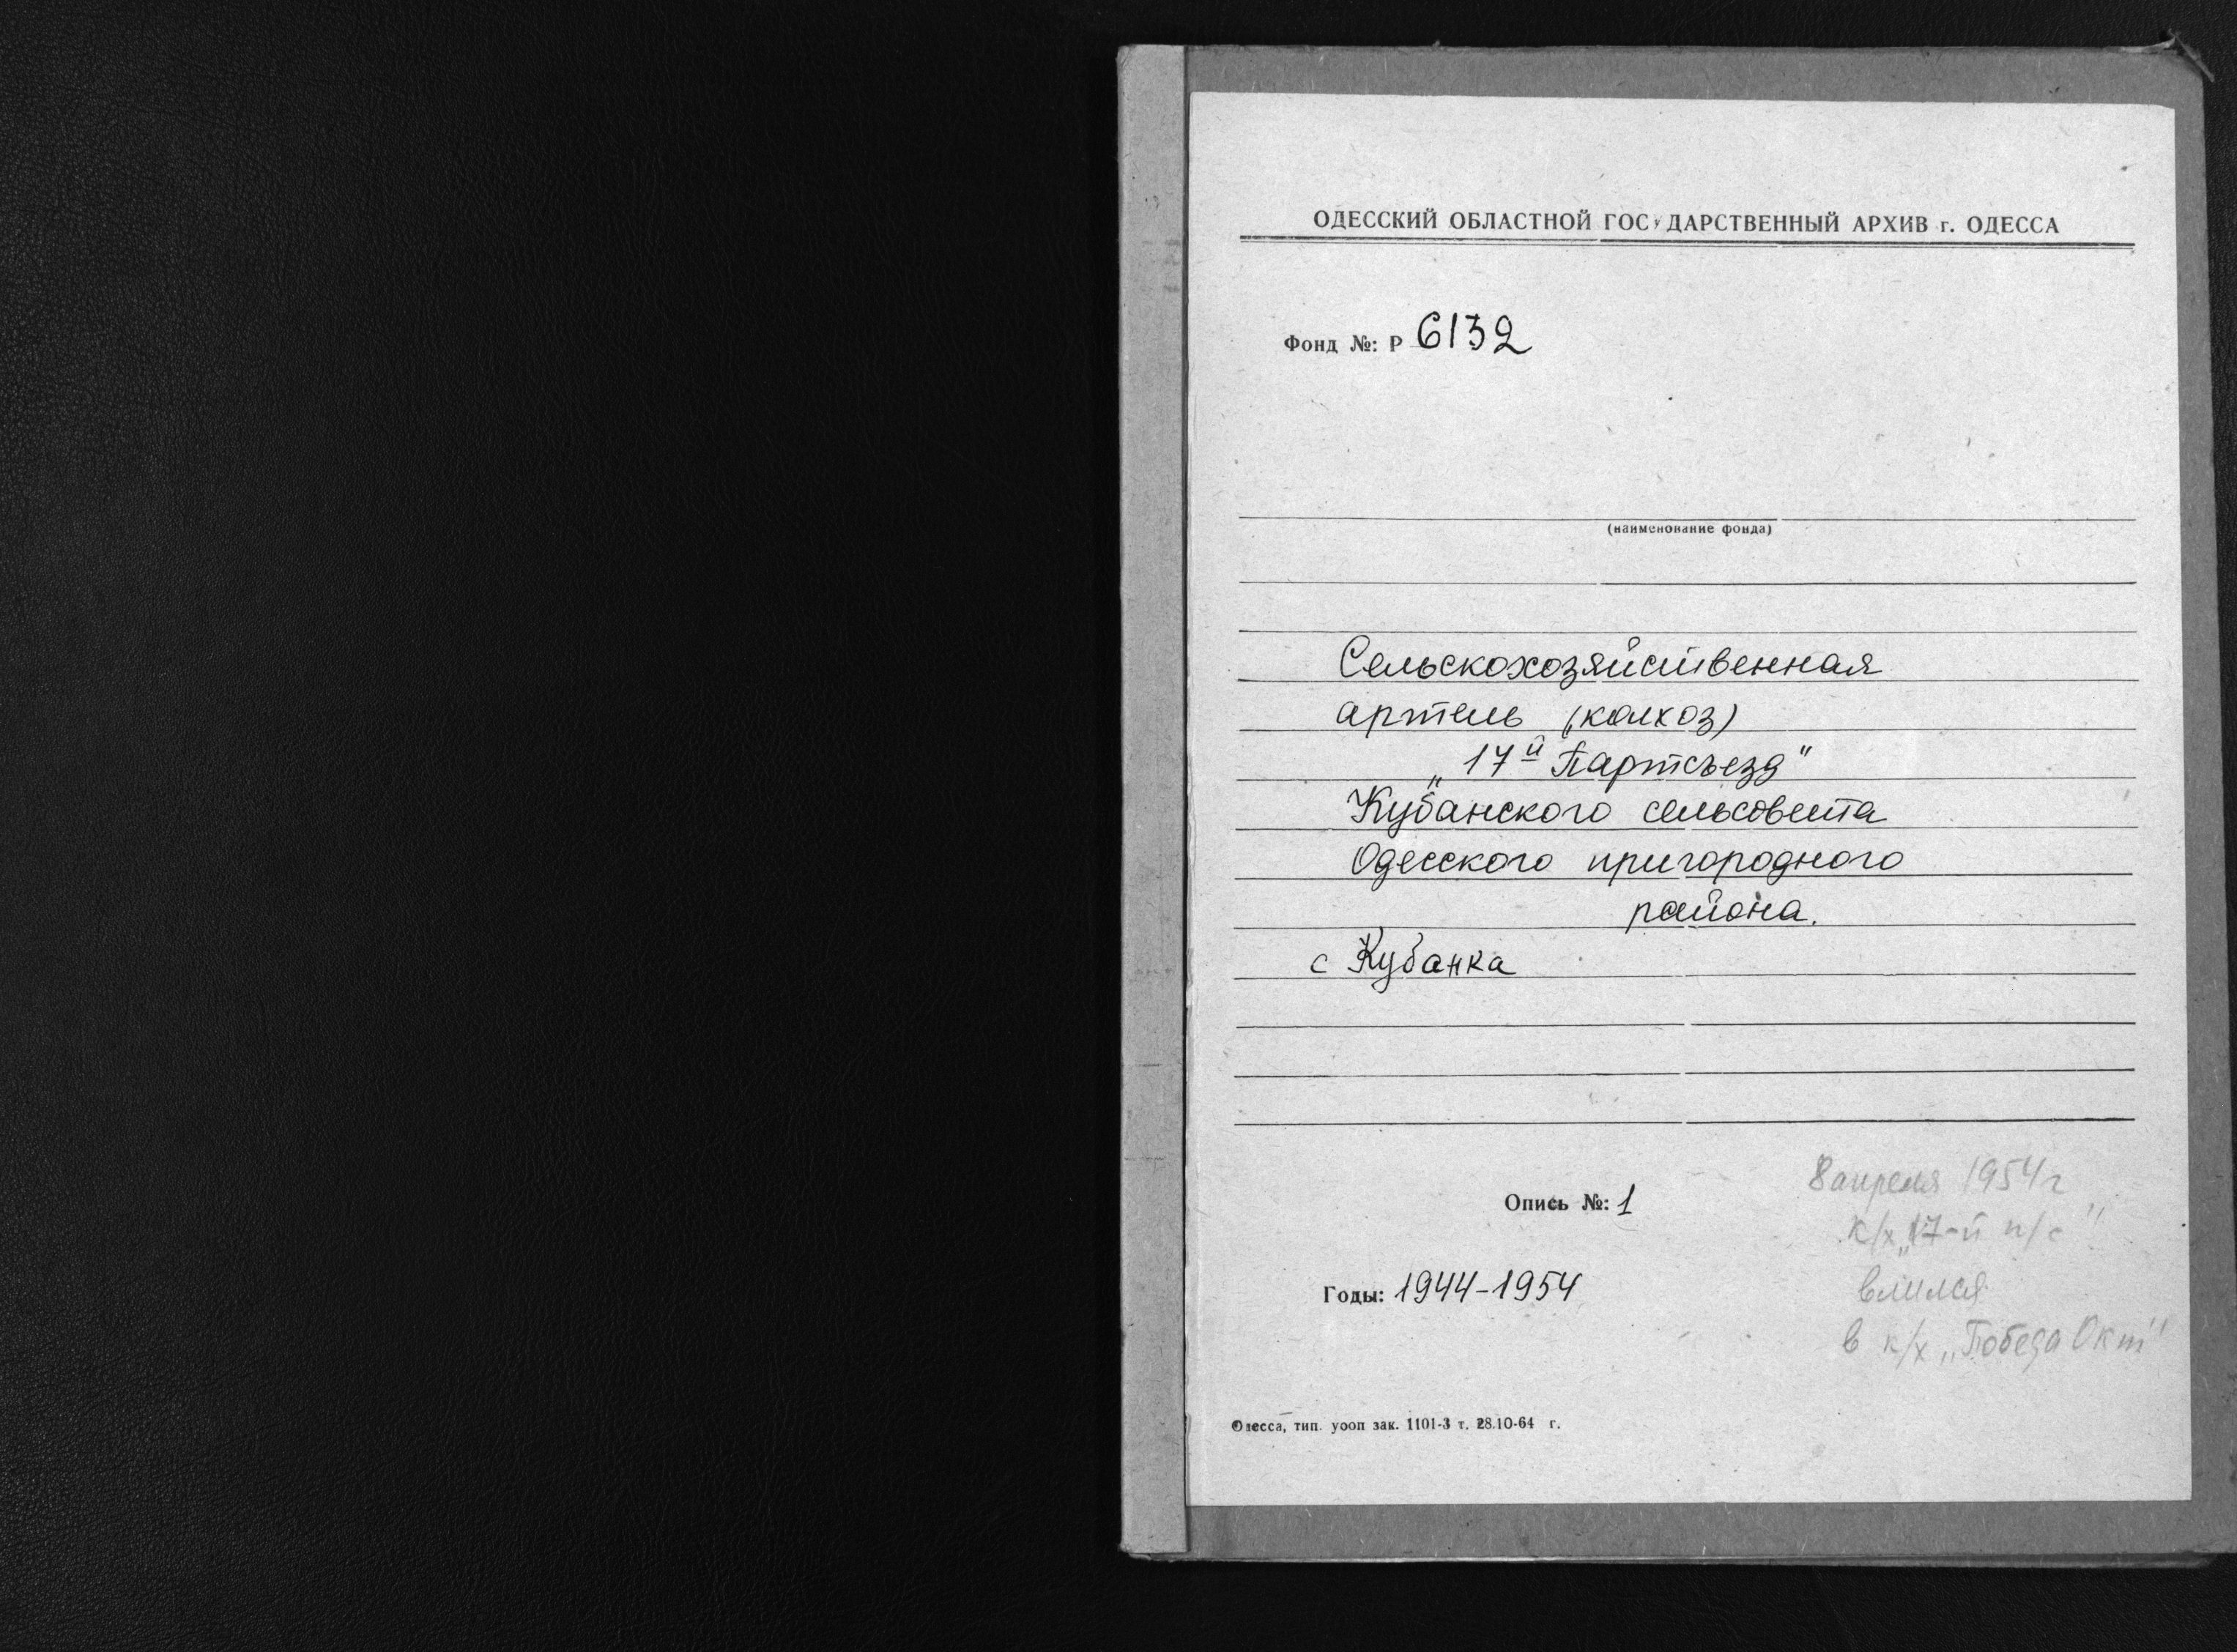 ОДЕССКИЙ ОБЛАСТНОЙ ГОСУДАРСТВЕННЫЙ АРХИВ г. ОДЕССА
Фонд №: Р 6132
(наименование фонда)
Сельскохозяйственная
артель (колхоз)
„17й Партсъезд"
Кубанского сельсовета
Одесского пригородного
района.
с Кубанка
8 апреля 1954 г
Опись №: 1
к/х „17-й п/с"
влился
Годы: 1944-1954
в к/х „Победа Окт"
Одесса, тип. уооп зак. 1101-3 т. 28.10-64 г.